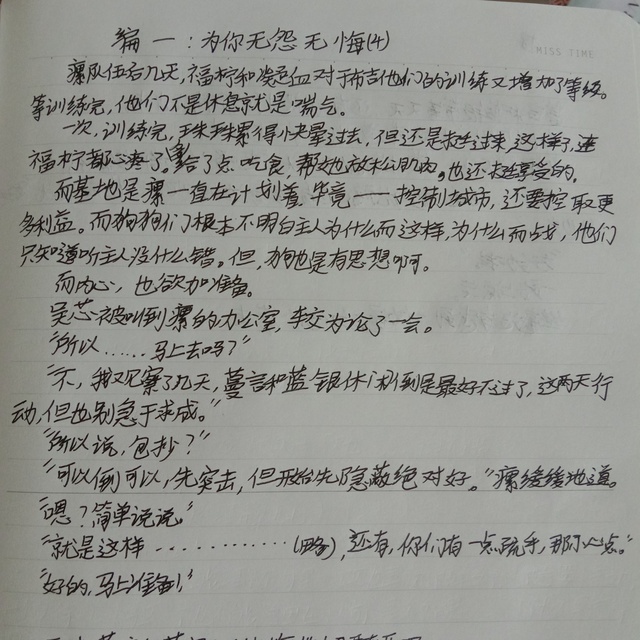 编一：为你无怨无悔(4)
MISS TIME
瘰队伍后几天，福柠和凌色血对于布吉他们的训练又增加了等级。
等训练完，他们不是休息就是喘气。
一次，训练完，珠珠累得快晕过去，但还是赶过来，这样了，连
福柠都心疼了。给了点吃食，帮她放松肌肉。也还挺享受的。
而基地是瘰一直在计划着，毕竟一一控制城市，还要控取更
多利益。而狗狗们根本不明白主人为什么而这样，为什么而战，他们
只知道听主人没什么错。但，狗也是有思想啊。
而内心，也欲加准备。
吴芯被叫到瘰的办公室，李交为论了一会。
“所以……马上去吗？”
“不，我观察了几天，蔓言和蓝银休闲倒是最好不过了，这两天行
动，但也别急于求成。”
“所以说，包抄？”
“可以倒可以，先突击，但开始先隐蔽绝对好。”瘰缓缓地道。
“嗯？简单说说。”
“就是这样…………(略)，还有，你们有一点疏手，那小心点。”
“好的，马上准备！”